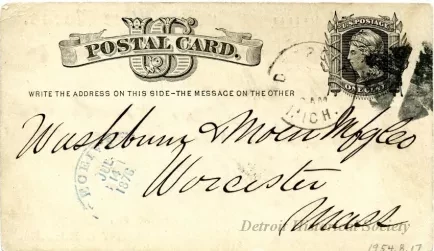 U.S. POSTAGE
US
POSTAL CARD.
ONE CENT
WRITE THE ADDRESS ON THIS SIDE-THE MESSAGE ON THE OTHER
AM
MICH.
Washburn & Moen Mfg Co
Worcester
Mass
RECEIVED
JUL
1876
Detroit Historical Society
1954.8.17